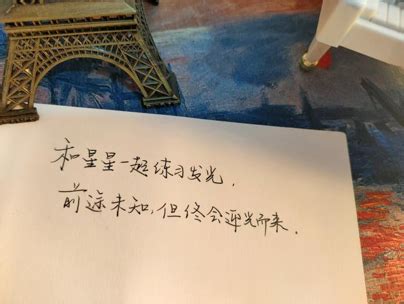 和星星一起练习发光，
前途未知，但终会迎光而来．